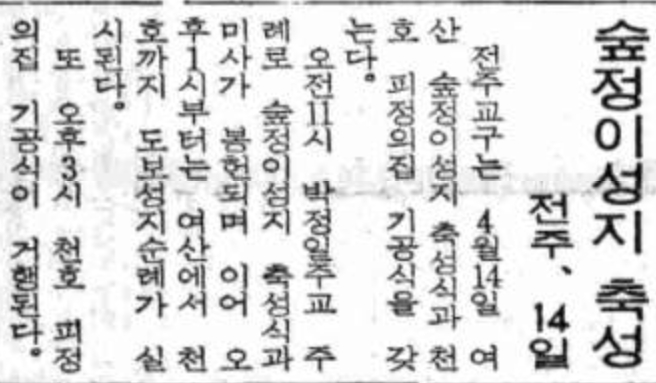 숲정이성지 축성
전주、 14일
전주교구는 4월14일 여
산 숲정이성지 축성식과 천
호 피정의집 기공식을 갖
는다。
오전11시 박정일주교 주
례로 숲정이성지 축성식과
미사가 봉헌되며 이어 오
후1시부터는 여산에서 천
호까지 도보성지순례가 실
시된다。
또 오후3시 천호 피정
의집 기공식이 거행된다。